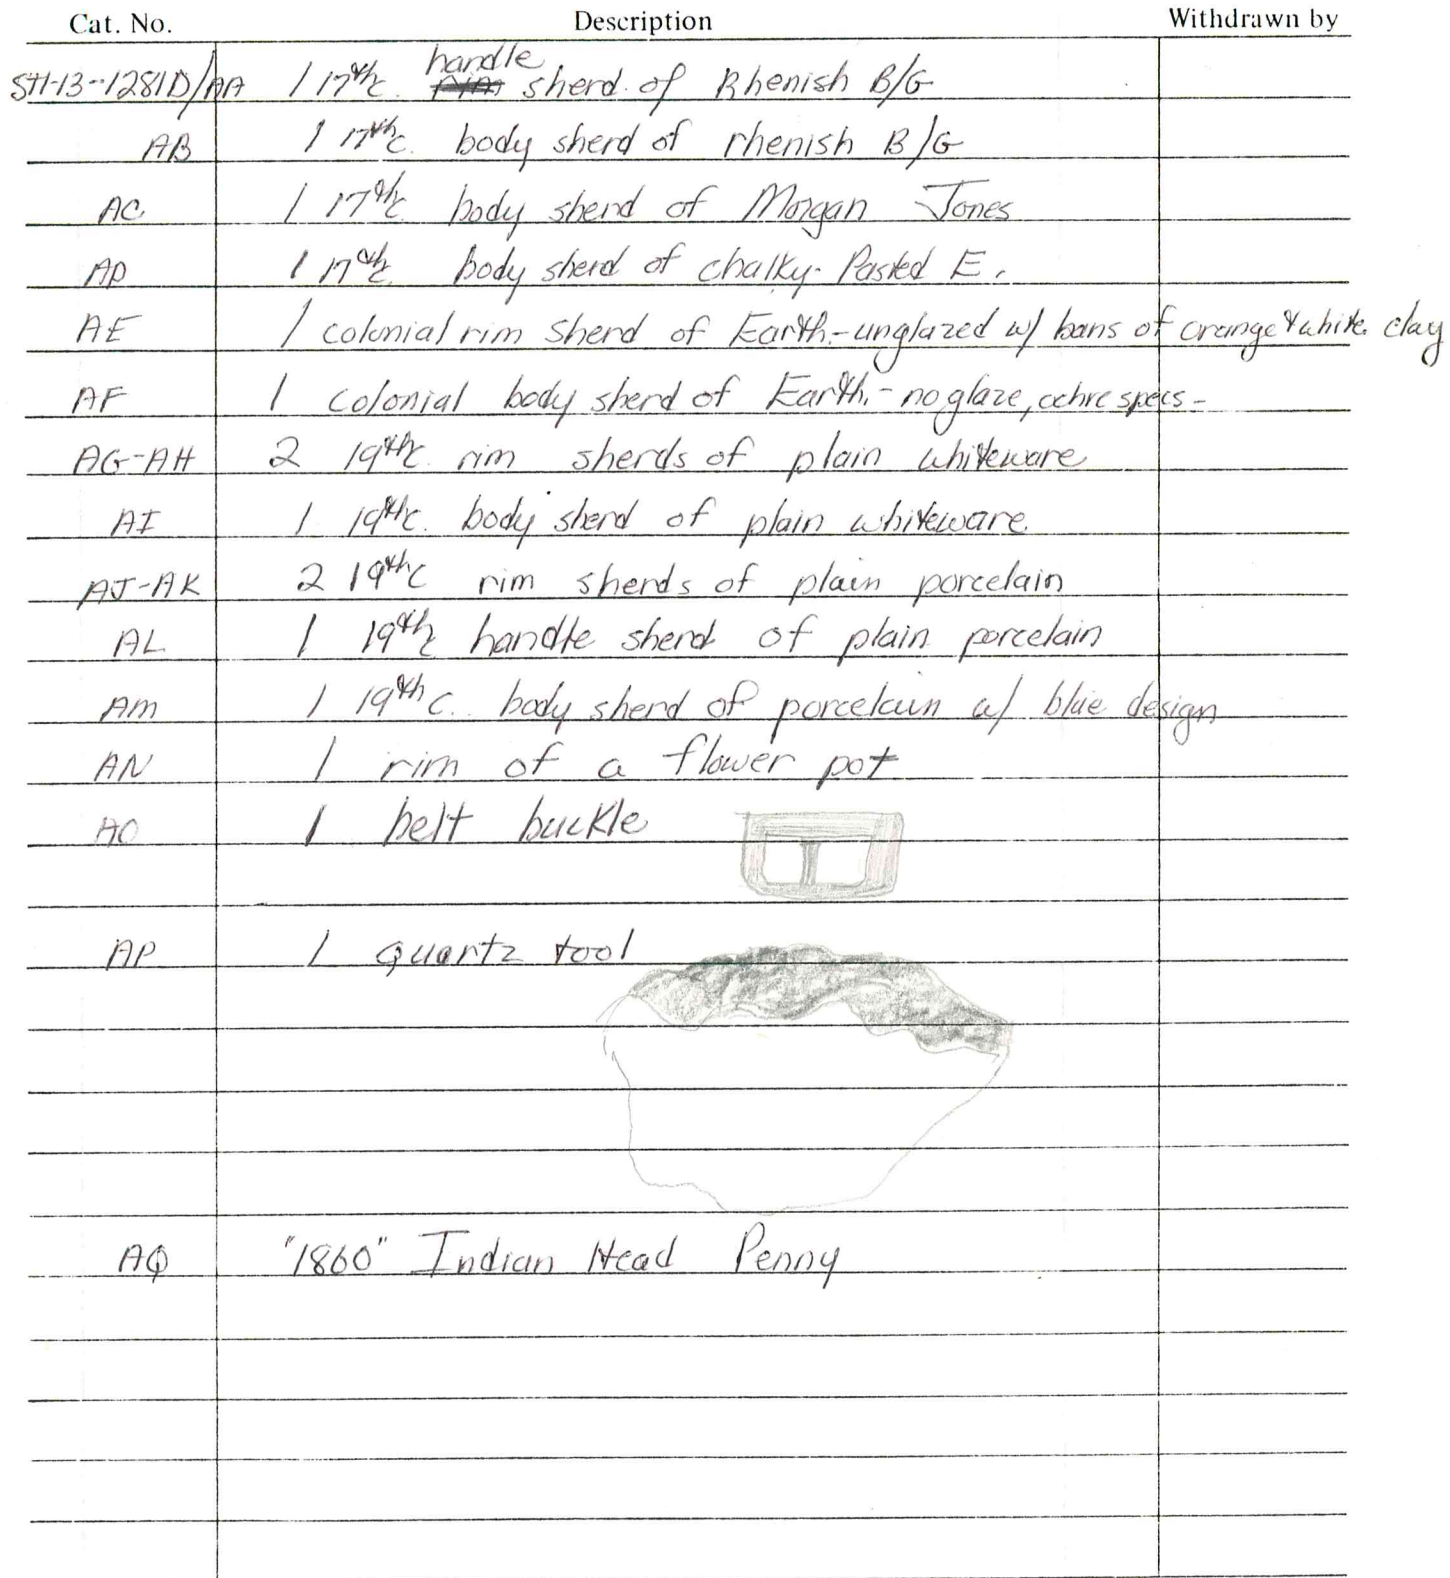 Cat. No. Description Withdrawn by
handle
ST1-13--1281D/AA 1 17th c. rim sherd of Rhenish B/G
AB 1 17th c. body sherd of rhenish B/G
AC 1 17th c. body sherd of Morgan Jones
AD 1 17th c. body sherd of chalky-Pasted E.
AE 1 colonial rim sherd of Earth.-unglazed w/ bans of orange & white clay
AF 1 colonial body sherd of Earth.- no glaze, ochre specs-
AG-AH 2 19th c. rim sherds of plain whiteware
AI 1 19th c. body sherd of plain whiteware
AJ-AK 2 19th c rim sherds of plain porcelain
AL 1 19th c handle sherd of plain porcelain
AM 1 19th c. body sherd of porcelain w/ blue design
AN 1 rim of a flower pot
AO 1 belt buckle
AP 1 quartz tool
AQ "1860" Indian Head Penny